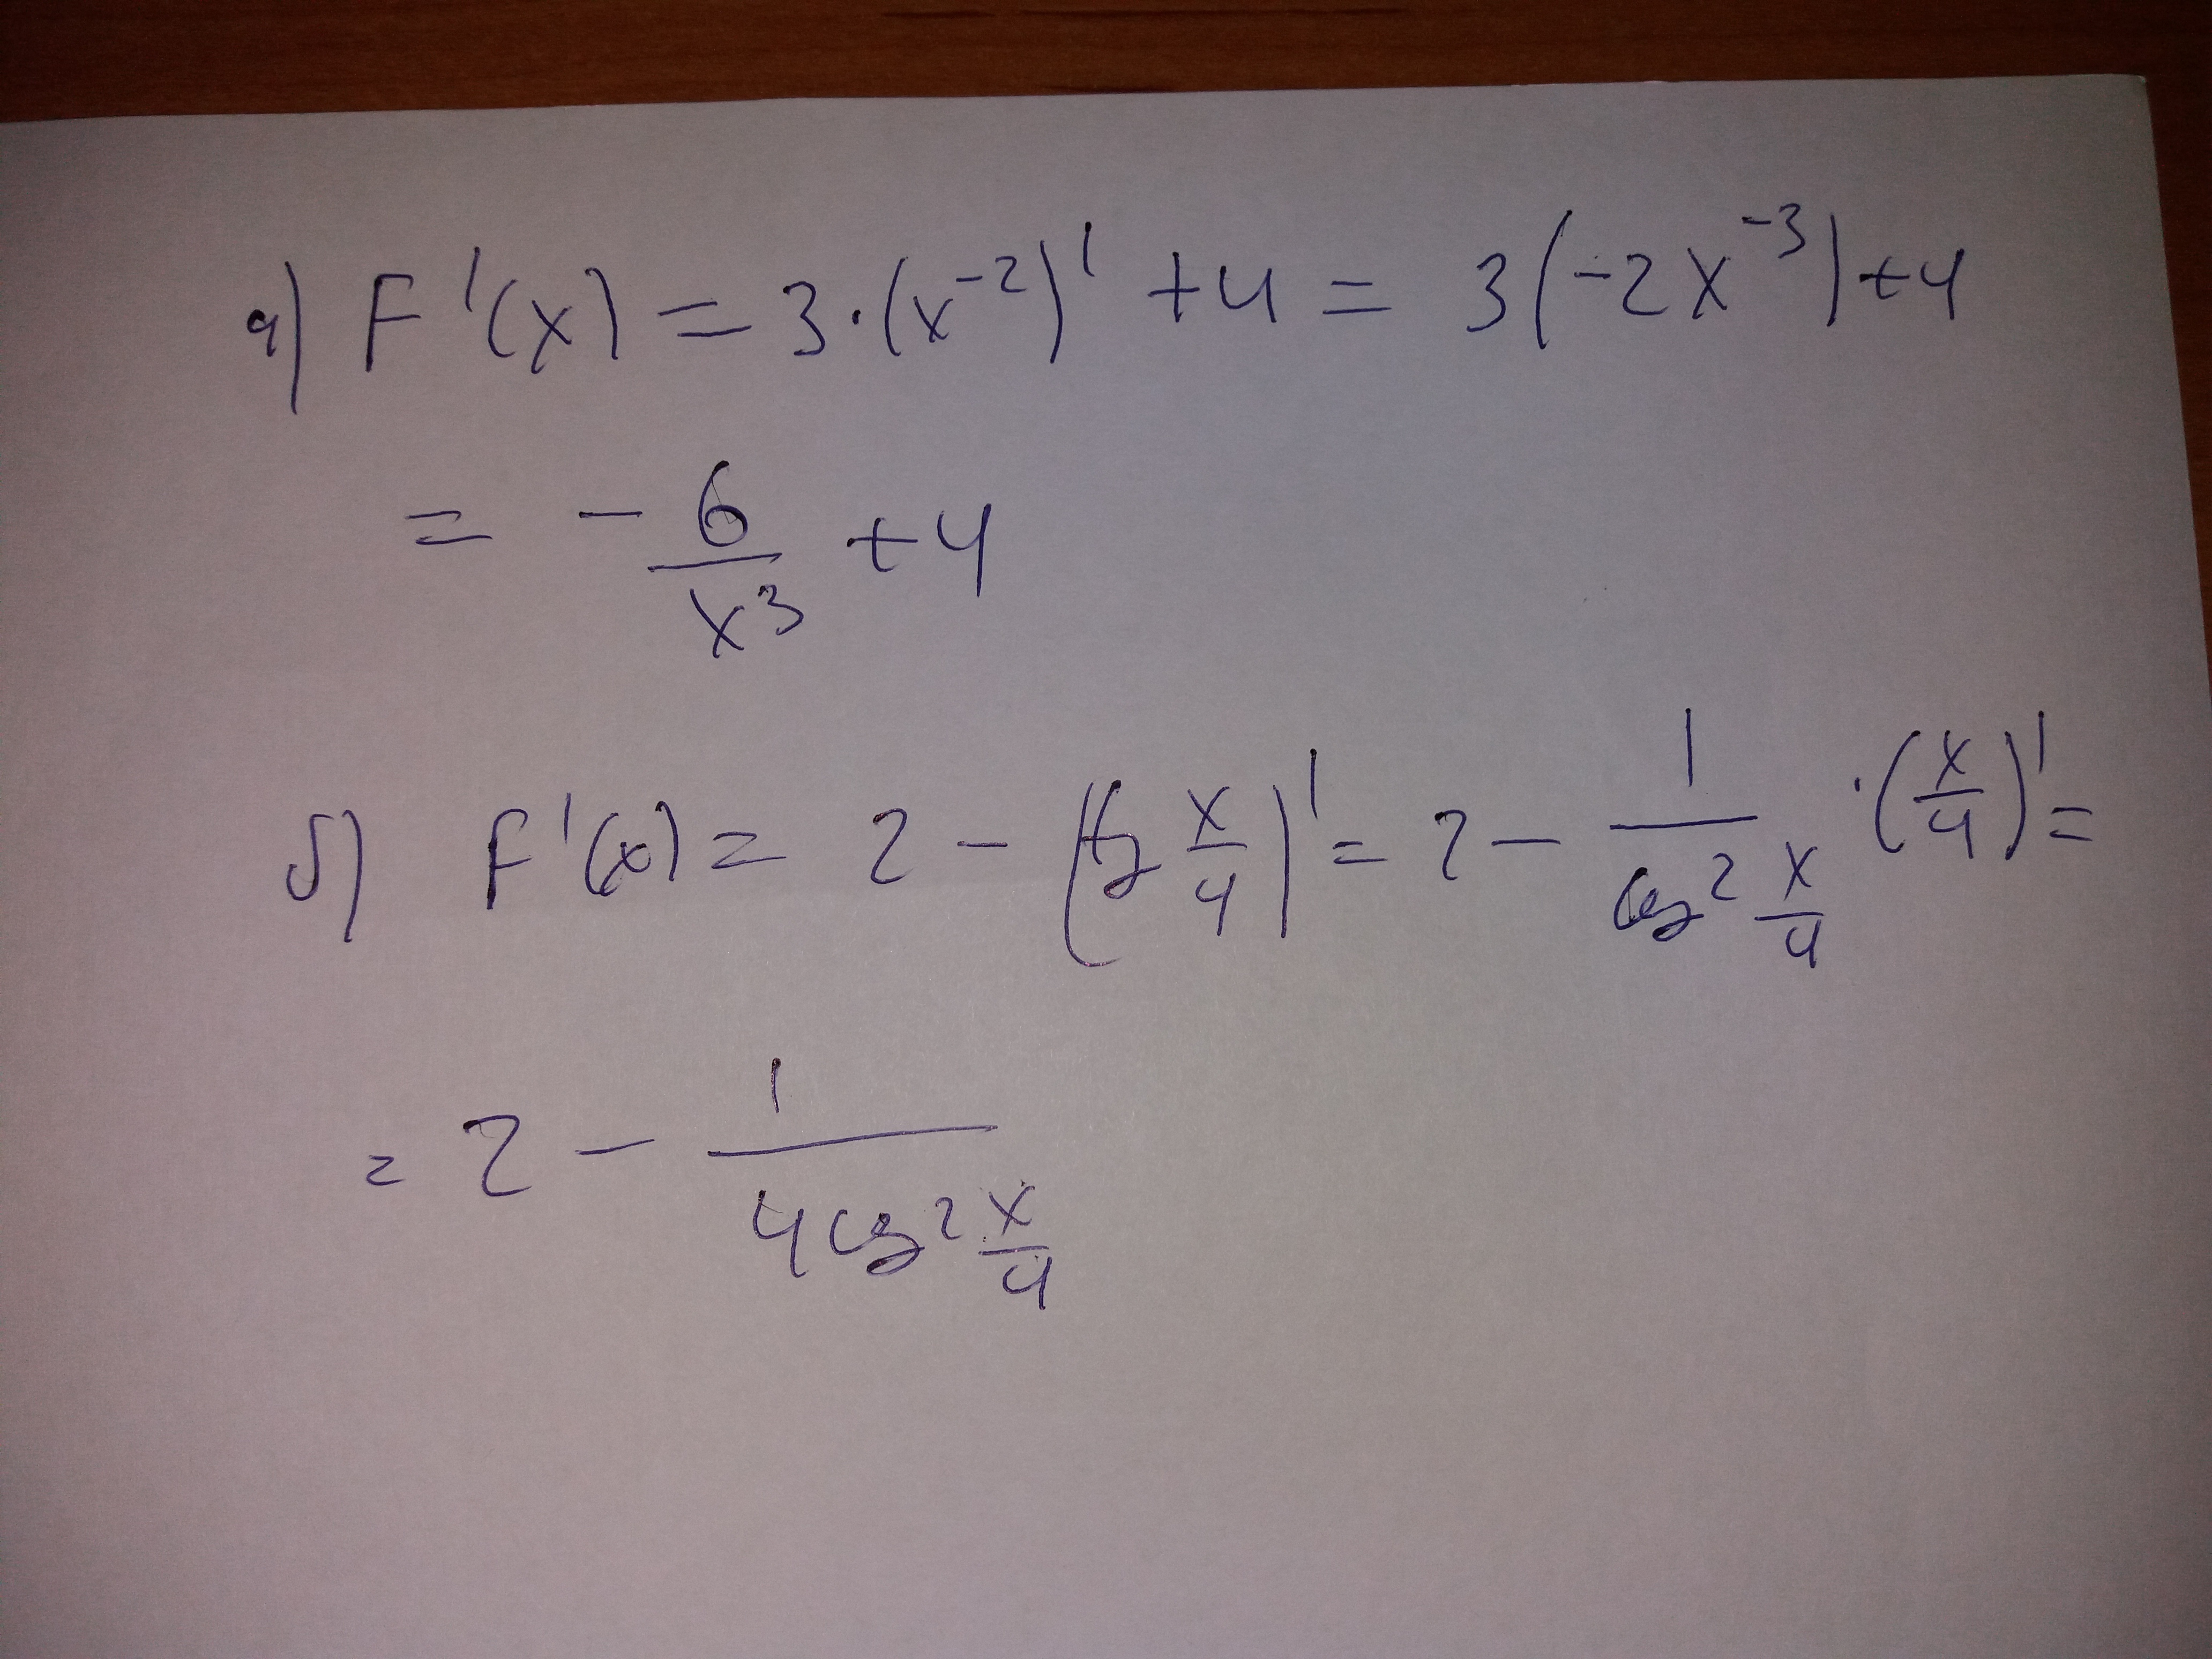 а) F'(x) = 3·(x⁻²)' + 4 = 3(-2x⁻³) + 4
= - 6/x³ + 4
б) F'(x) = 2 - (tg x/4)' = 2 - 1/cos² x/4 · (x/4)' =
= 2 - 1/4cos² x/4